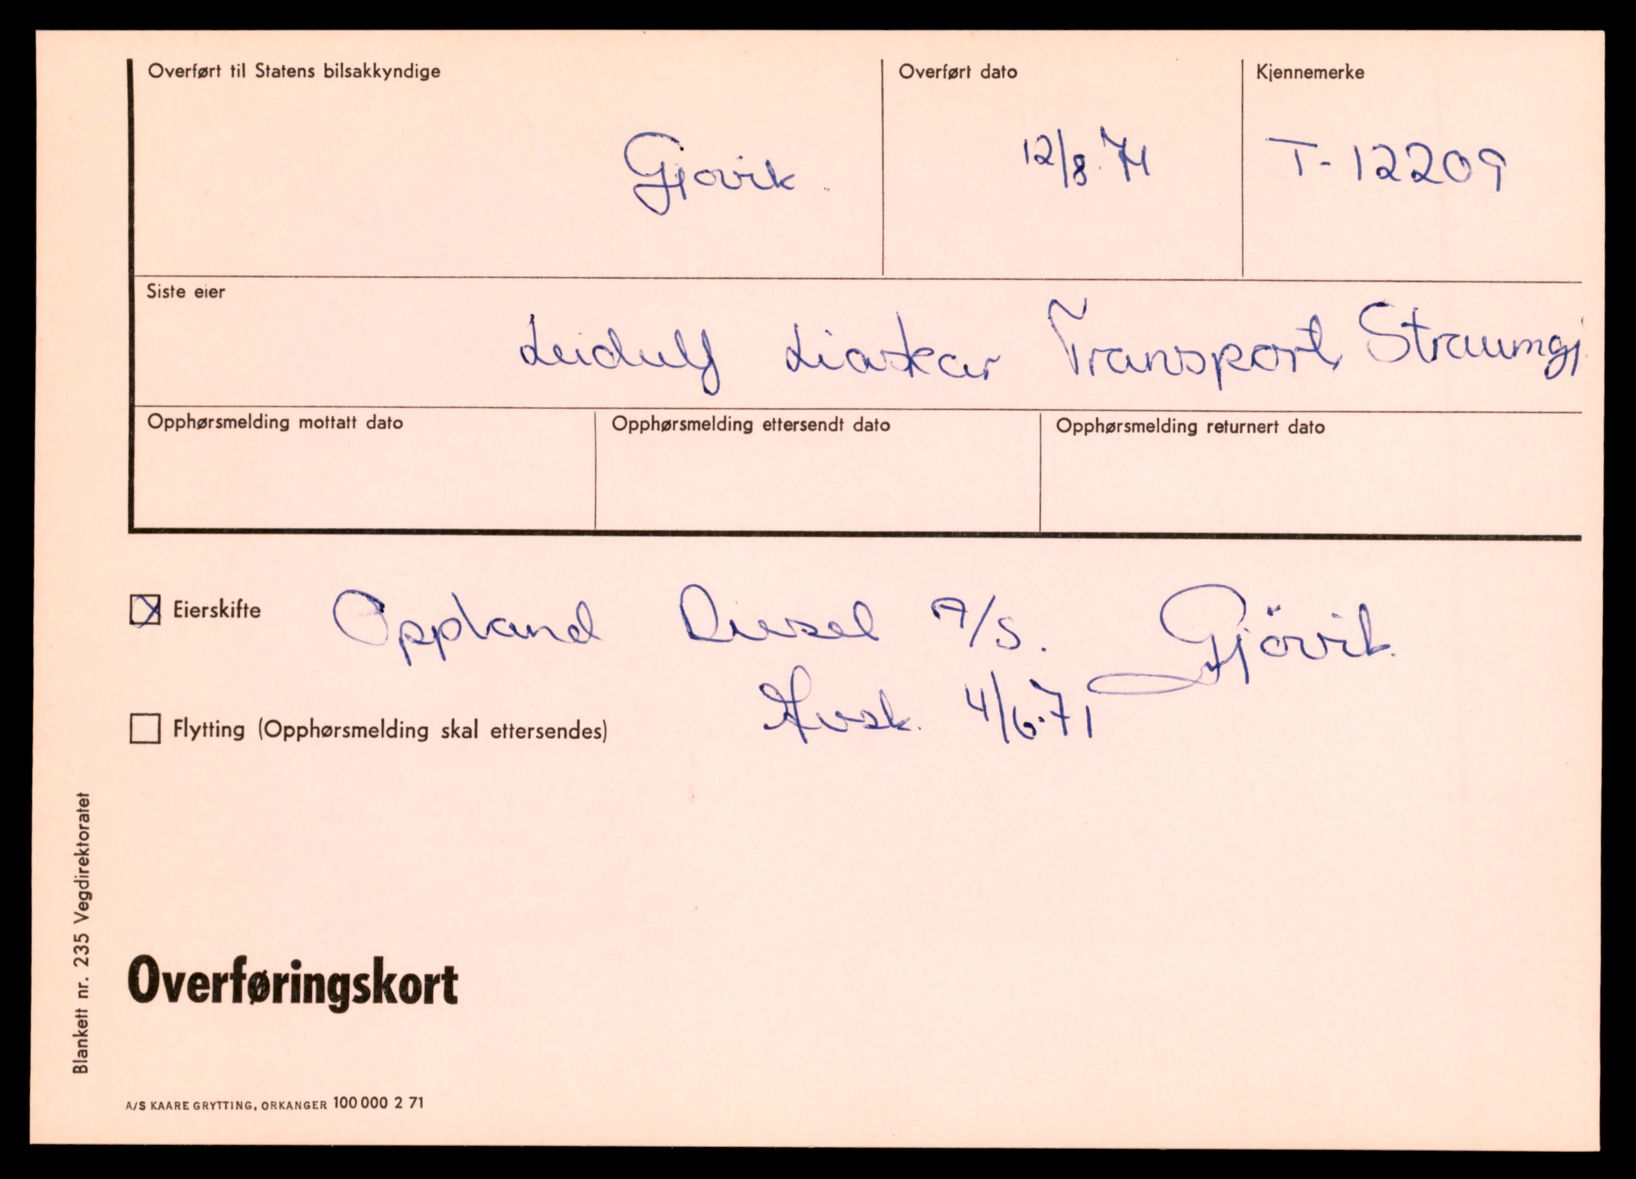 Overført til Statens bilsakkyndige
Overført dato
Kjennemerke
Gjøvik.
12/8.71
T-12209
Siste eier
Leidulf Liaskar Transport, Straumgj.
Opphørsmelding mottatt dato
Opphørsmelding ettersendt dato
Opphørsmelding returnert dato
Eierskifte
Oppland Diesel A/S. Gjövik.
Avsk. 4/6.71
Flytting (Opphørsmelding skal ettersendes)
Blankett nr. 235 Vegdirektoratet
Overføringskort
A/S KAARE GRYTTING, ORKANGER 100 000 2 71